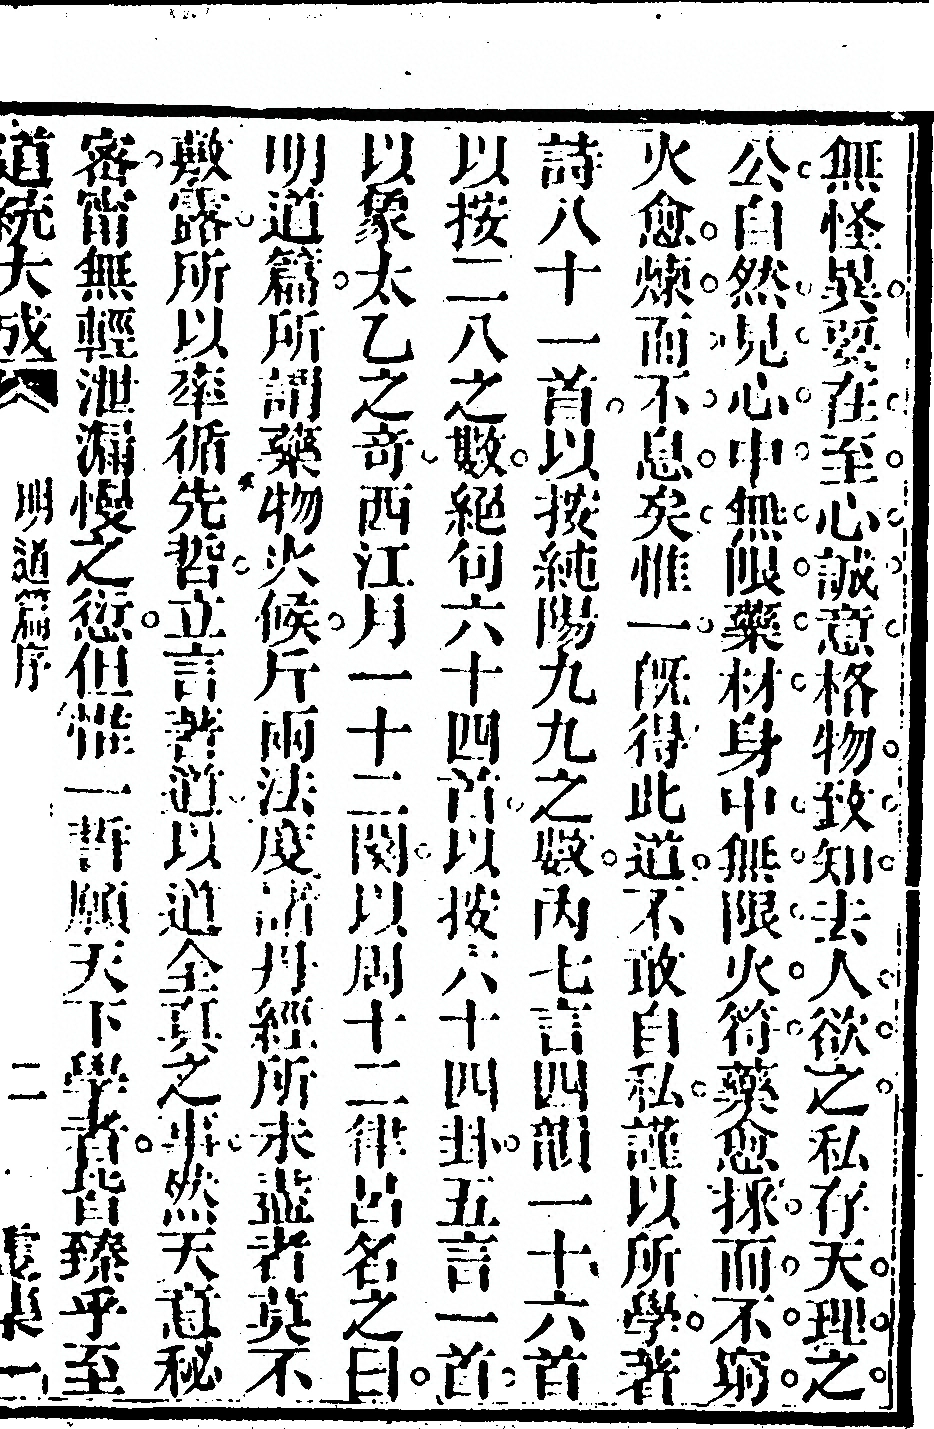 無怪異要在至心誠意格物致知去人欲之私存天理之
公自然見心中無限藥材身中無限火符藥愈採而不窮
火愈煉而不息矣惟一既得此道不敢自私謹以所學著
詩八十一首以按純陽九九之數內七言四韻一十六首
以按二八之數絕句六十四首以按六十四卦五言一首
以象太乙之奇西江月一十二闋以周十二律呂名之曰
明道篇所謂藥物火候斤兩法度諸丹經所未盡者莫不
敷露所以率循先哲立言著道以道全真之事然天意秘
密甯無輕泄漏慢之愆但惟一誓願天下學者皆臻乎至
道統大成 明道篇序 二 虛集一